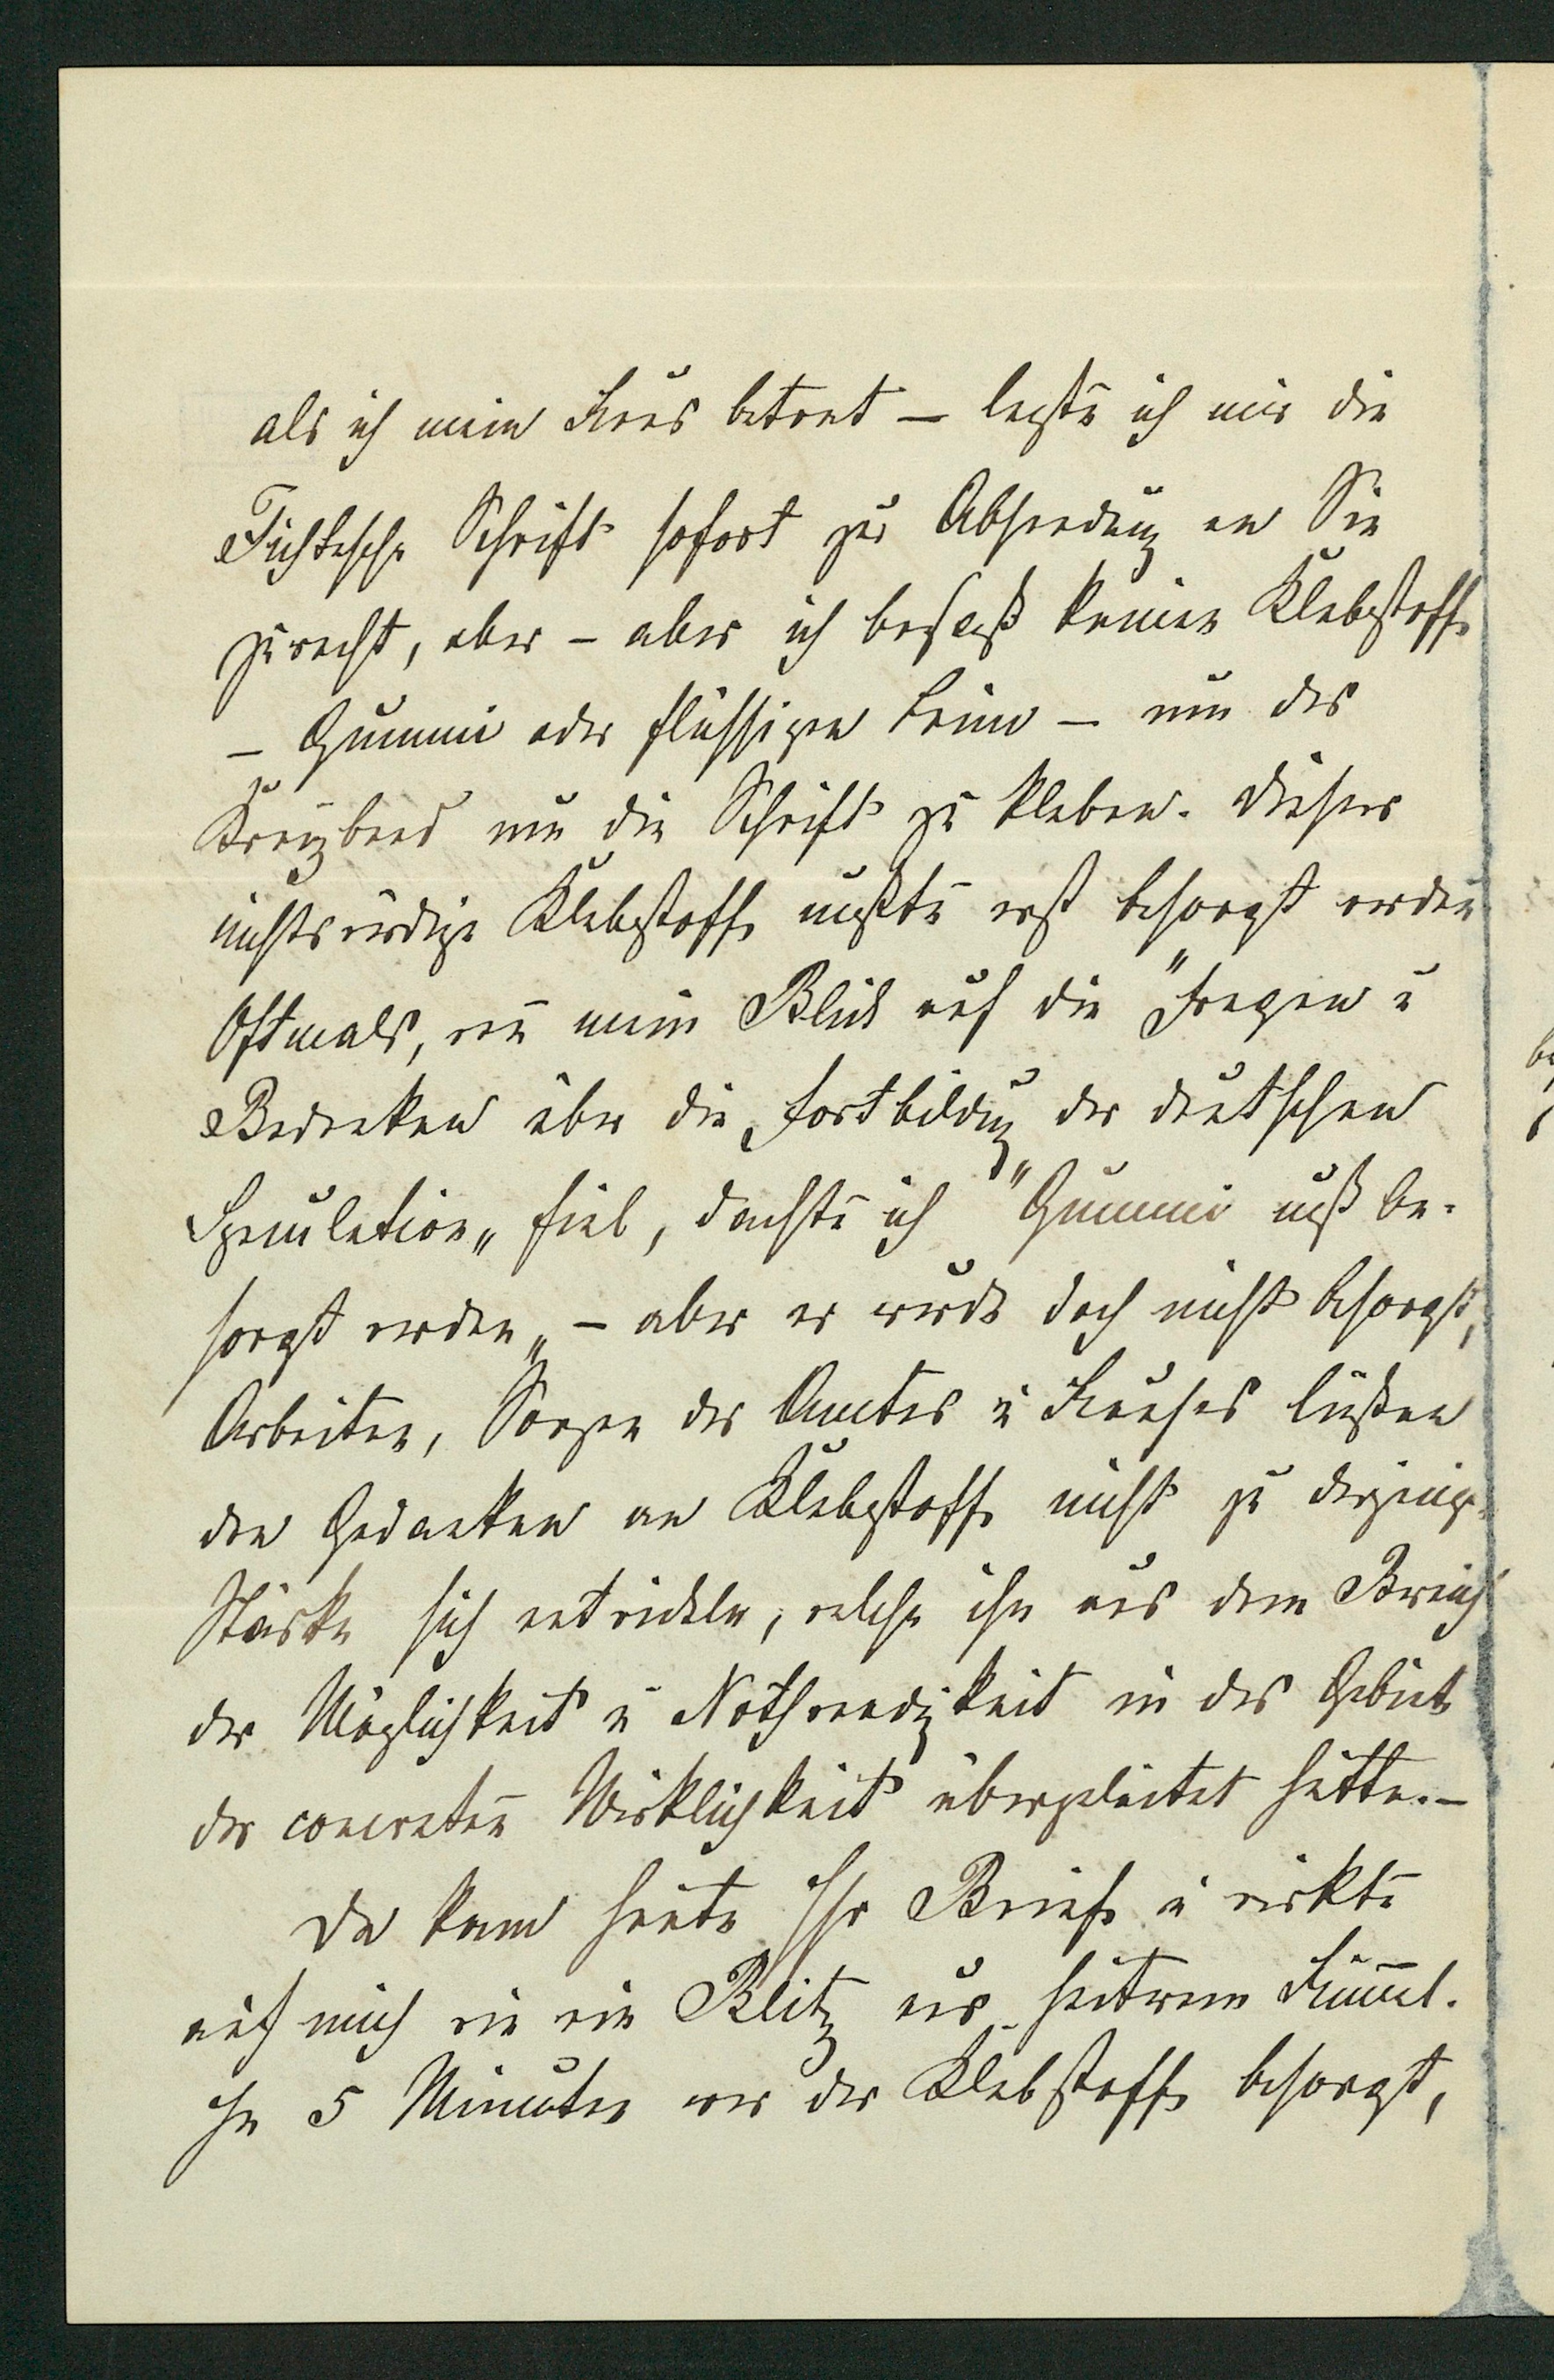 als ich mein Haus betrat – legte ich mir die
Fichtesche Schrift sofort zur Absendung an Sie
zurecht, aber – aber ich besaß keinen Klebstoff
– Gummi oder flüssigen Leim – um das
Kreuzband um die Schrift zu kleben. Dieser
nichtswürdige Klebstoff mußte erst besorgt werden
Oftmals, wenn mein Blick auf die "Fragen u
Bedenken über die Fortbildung der deutschen
Speculation„ fiel, dachte ich "Gummi muß be-
sorgt werden„ – aber er wurde doch nicht besorgt,
Arbeiten, Sorgen des Amtes u Hauses ließen
den Gedanken an Klebstoff nicht zu derjenigen
Stärke sich entwickeln, welche ihn aus dem Bereich
der Möglichkeit u Nothwendigkeit in das Gebiet
der concreten Wirklichkeit übergeleitet hätte. –
Da kam heute Ihr Brief u wirkte
auf mich wie ein Blitz aus heiterem Himmel.
In 5 Minuten war der Klebstoff besorgt,